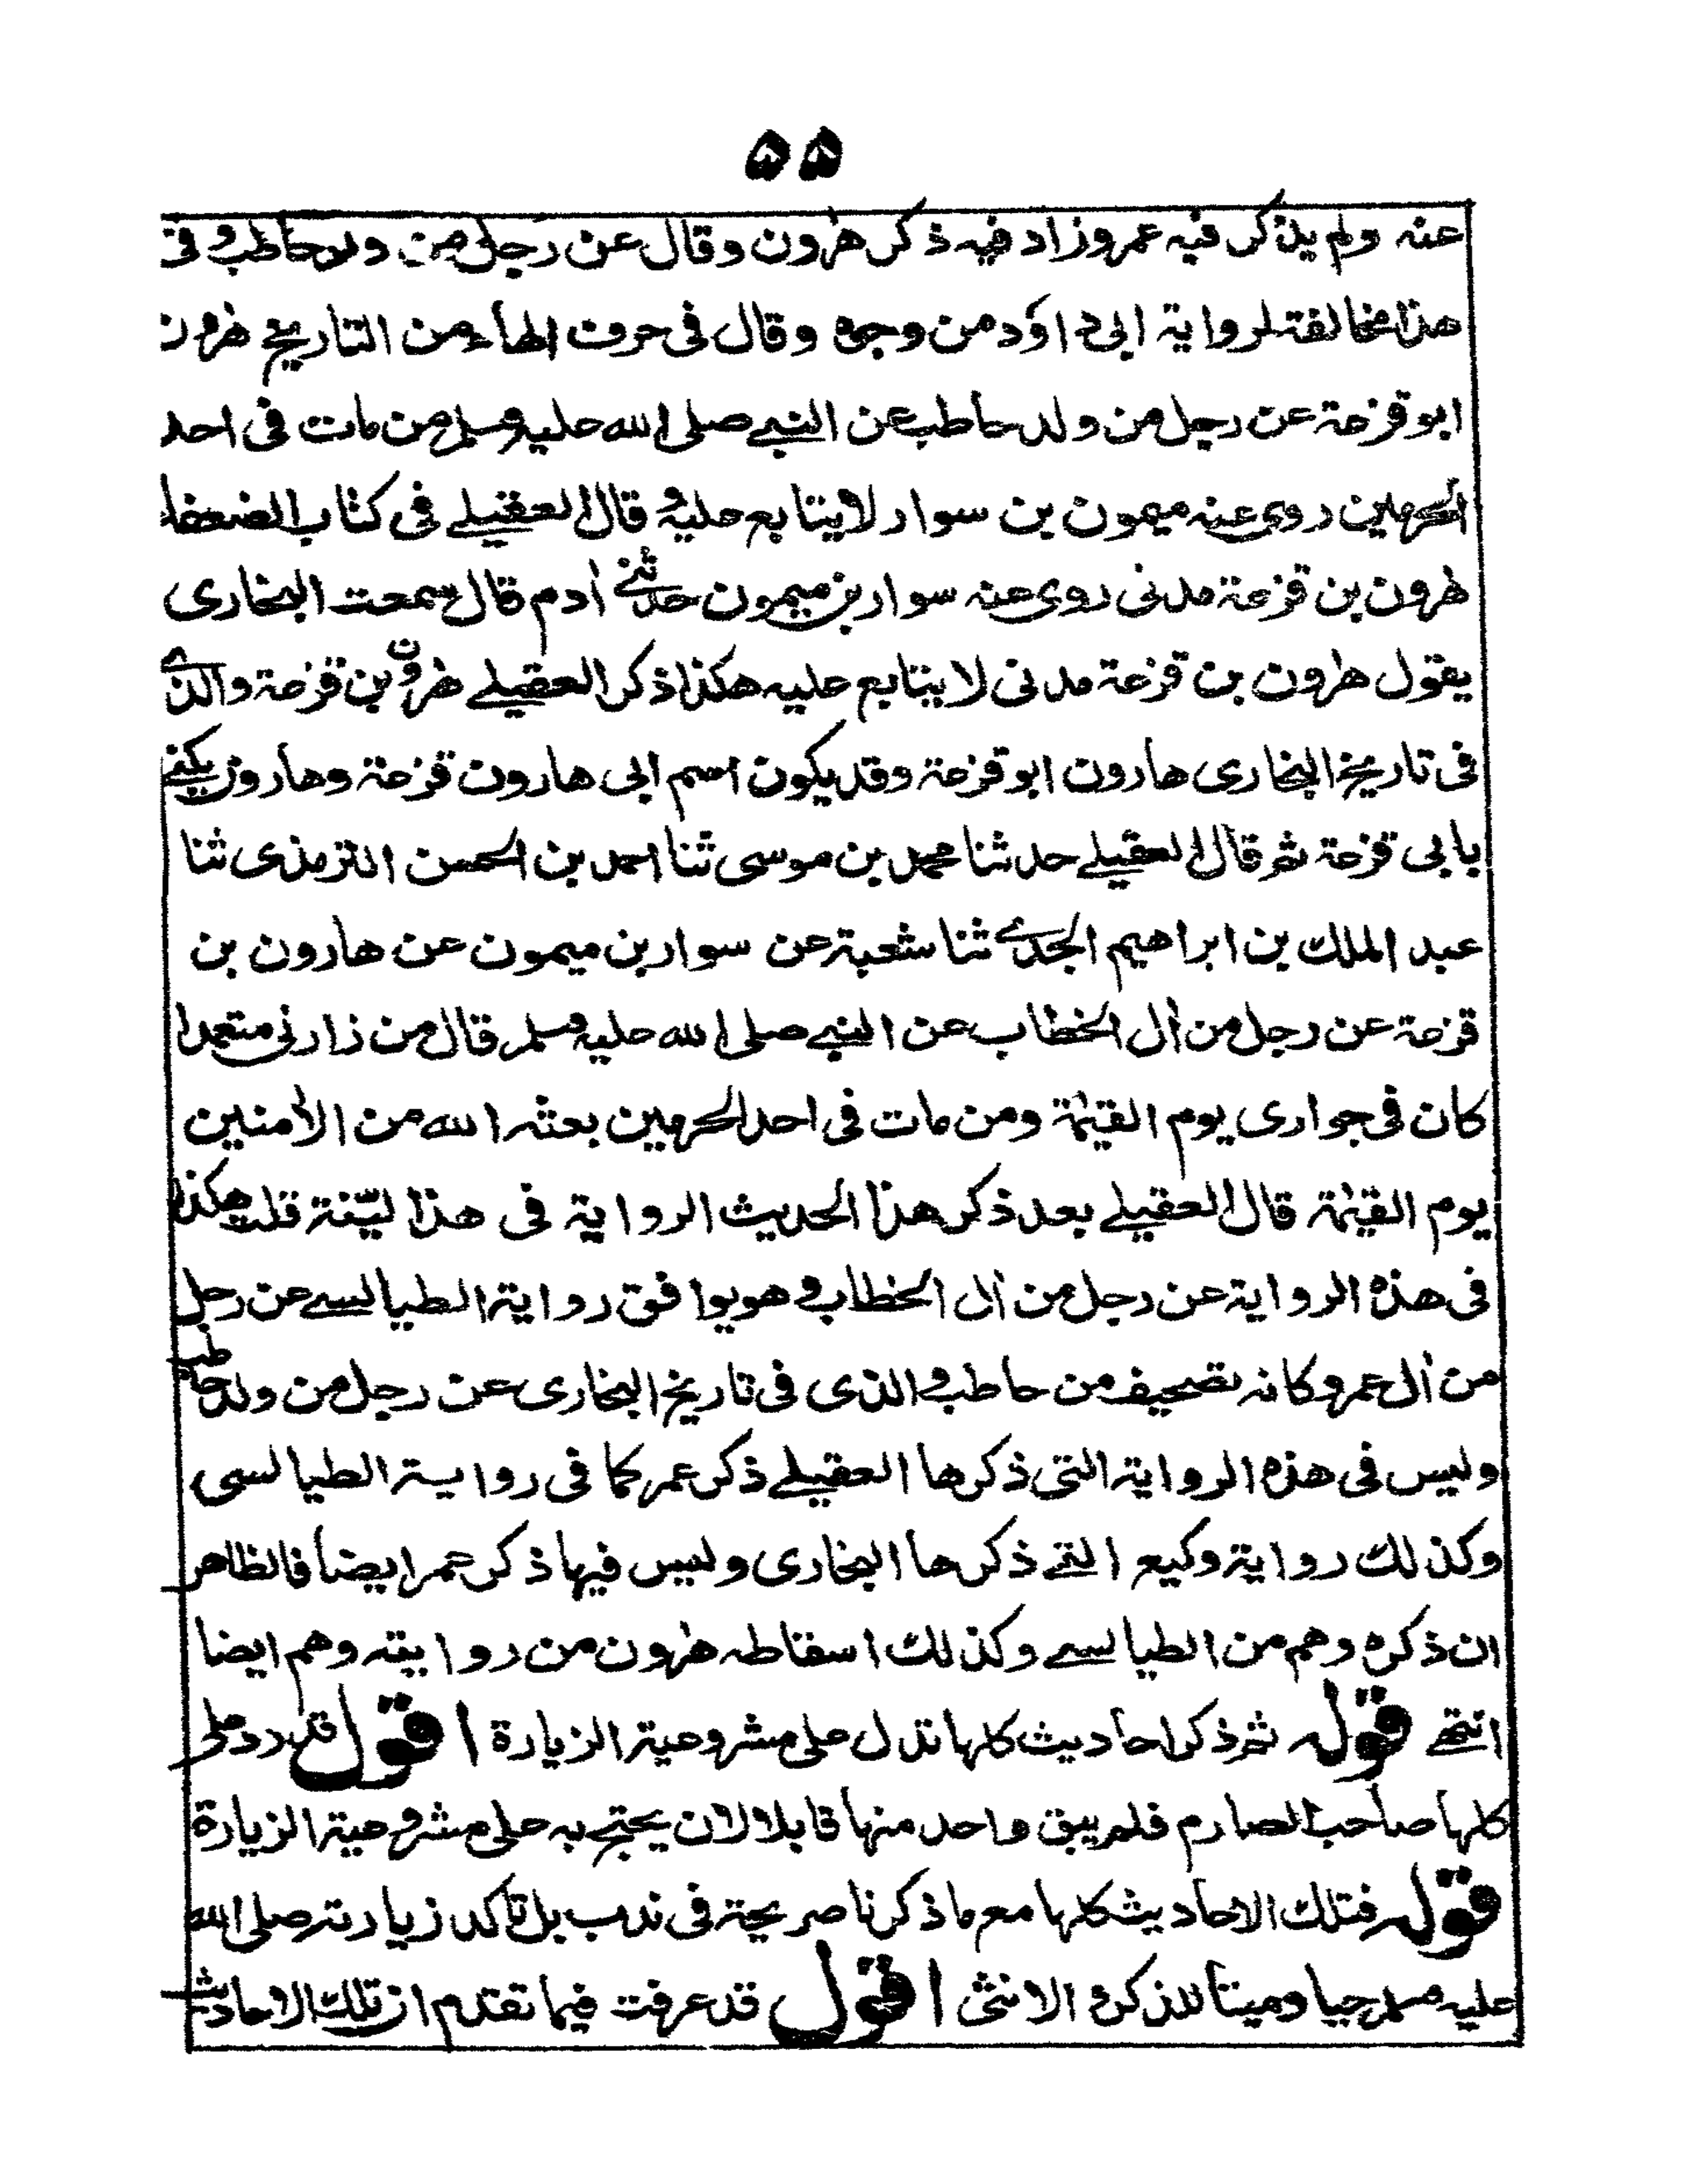 ۵۵
عنه ولم يذكر فيه عمر وزاد فيه ذكر هٰرون وقال عن رجل من ولد حاطب وفى
هذا مخالفة لرواية ابى داؤد من وجوه وقال فى حرف الهاء من التاريخ هٰرون
ابو قزعة عن رجل من ولد حاطب عن النبي صلى الله عليه وسلم من مات فى احد
الحرمين روى عنه ميمون بن سوار لا يتابع عليه وقال العقيلے فى كتاب الضعفاء
هٰرون بن قزعة مدنى روى عنه سوار بن ميمون حدثنے اٰدم قال سمعت البخارى
يقول هٰرون بن قزعة مدنى لا يتابع عليه هكذا ذكر العقيلے هٰرون بن قزعة والذے
فى تاريخ البخارى هارون ابو قزعة وقد يكون اسم ابى هارون قزعة وهارون يكنے
بابى قزعة ثم قال العقيلے حدثنا محمد بن موسى ثنا احمد بن الحسن الترمذى ثنا
عبد الملك بن ابراهيم الجدے ثنا شعبة عن سوار بن ميمون عن هارون بن
قزعة عن رجل من اٰل الخطاب عن النبے صلى الله عليه وسلم قال من زارنى متعمدا
كان فى جوارى يوم القيٰمة ومن مات فى احد الحرمين بعثه الله من الاٰمنين
يوم القيٰمة قال العقيلے بعد ذكر هذا الحديث الرواية فى هذا ليّنة قلت هكذا
فى هذه الرواية عن رجل من اٰل الخطاب وهو يوافق رواية الطيالسے عن رجل
من اٰل عمر وكانه تصحيف من حاطب والذى فى تاريخ البخارى عن رجل من ولد حاطب
وليس فى هذه الرواية التى ذكرها العقيلے ذكر عمر كما فى رواية الطيالسى
وكذلك رواية وكيع التے ذكرها البخارى وليس فيها ذكر عمر ايضا فالظاهر
ان ذكره وهم من الطيالسے وكذلك اسقاطه هٰرون من روايته وهم ايضا
انتهے قوله ثم ذكر احاديث كلها تدل على مشروعية الزيارة اقول قد رد على
كلها صاحب الصارم فلم يبق واحد منها قابلا لان يحتج به على مشروعية الزيارة
قوله فتلك الاحاديث كلها مع ما ذكرنا صريحة فى ندب بل تاكد زيارته صلى الله
عليه وسلم حيا وميتا للذكر والانثى اقول قد عرفت فيما تقدم ان تلك الاحاديث